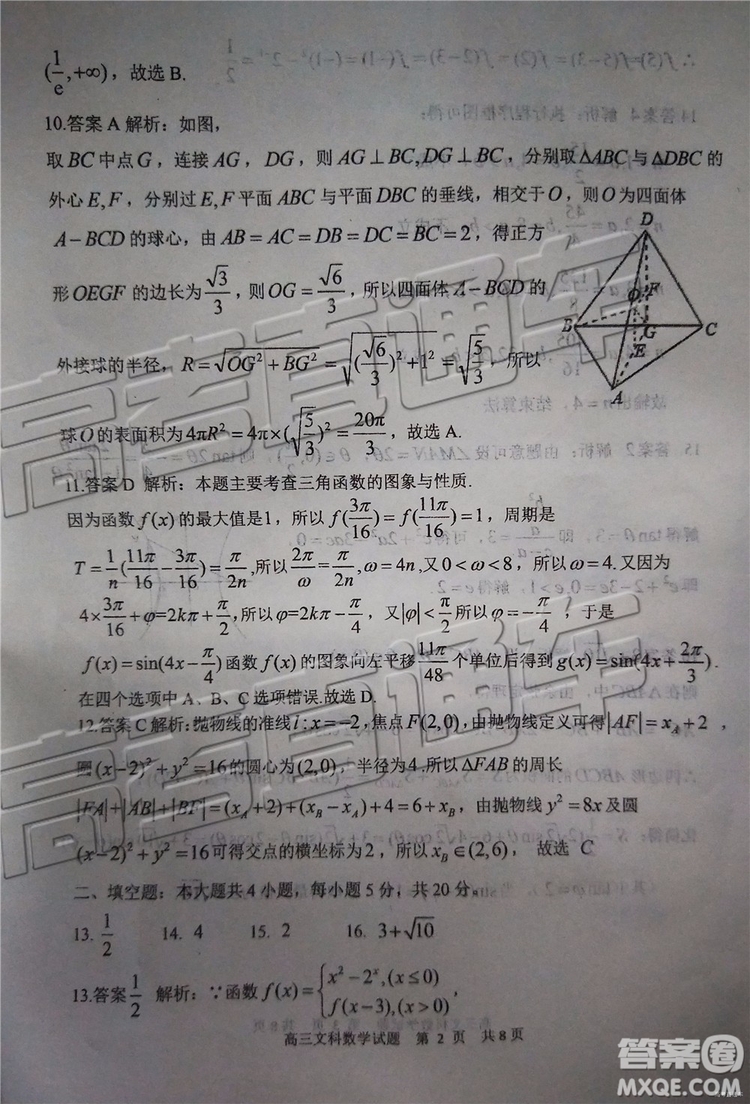 (1/e,+∞)，故选 B.
10.答案 A 解析：如图，
取 BC 中点 G，连接 AG，DG，则 AG⊥BC,DG⊥BC，分别取 ΔABC 与 ΔDBC 的
外心 E,F，分别过 E,F 平面 ABC 与平面 DBC 的垂线，相交于 O，则 O 为四面体
A−BCD 的球心，由 AB=AC=DB=DC=BC=2，得正方
形 OEGF 的边长为 √3/3，则 OG=√6/3，所以四面体 A−BCD 的
外接球的半径，R=√(OG²+BG²)=√((√6/3)²+1²)=√(5/3)，所以
球 O 的表面积为 4πR²=4π×(√(5/3))²=20π/3，故选 A.
D
F
O
B
G
C
E
A
11.答案 D 解析：本题主要考查三角函数的图象与性质.
因为函数 f(x) 的最大值是1，所以 f(3π/16)=f(11π/16)=1，周期是
T=1/n(11π/16−3π/16)=π/2n,所以 2π/ω=π/2n,ω=4n,又 0<ω<8，所以 ω=4.又因为
4×3π/16+φ=2kπ+π/2,所以 φ=2kπ−π/4，又|φ|<π/2 所以 φ=−π/4，于是
f(x)=sin(4x−π/4) 函数 f(x) 的图象向左平移 11π/48 个单位后得到 g(x)=sin(4x+2π/3).
在四个选项中 A、B、C 选项错误.故选 D.
12.答案 C 解析:抛物线的准线 l:x=−2,焦点 F(2,0),由抛物线定义可得|AF|=x_A+2，
圆 (x−2)²+y²=16 的圆心为(2,0)，半径为 4,所以 ΔFAB 的周长
|FA|+|AB|+|BF|=(x_A+2)+(x_B−x_A)+4=6+x_B，由抛物线 y²=8x 及圆
(x−2)²+y²=16 可得交点的横坐标为 2，所以 x_B∈(2,6)，故选 C
二、填空题：本大题共 4 小题，每小题 5 分，共 20 分。
13. 1/2 14. 4 15. 2 16. 3+√10
13.答案 1/2 解析：∵函数 f(x)={x²−2ˣ,(x≤0) f(x−3),(x>0)，
高三文科数学试题 第 2 页 共 8 页
高考直通车
高考直通车
答案圈
MXQE.COM